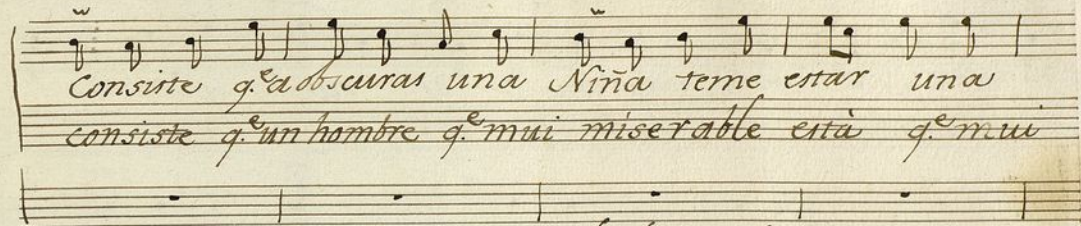 Consiste q.ᵉ a obscuras una Niña teme estar una
consiste q.ᵉ un hombre q.ᵉ mui miserable està q.ᵉ mui